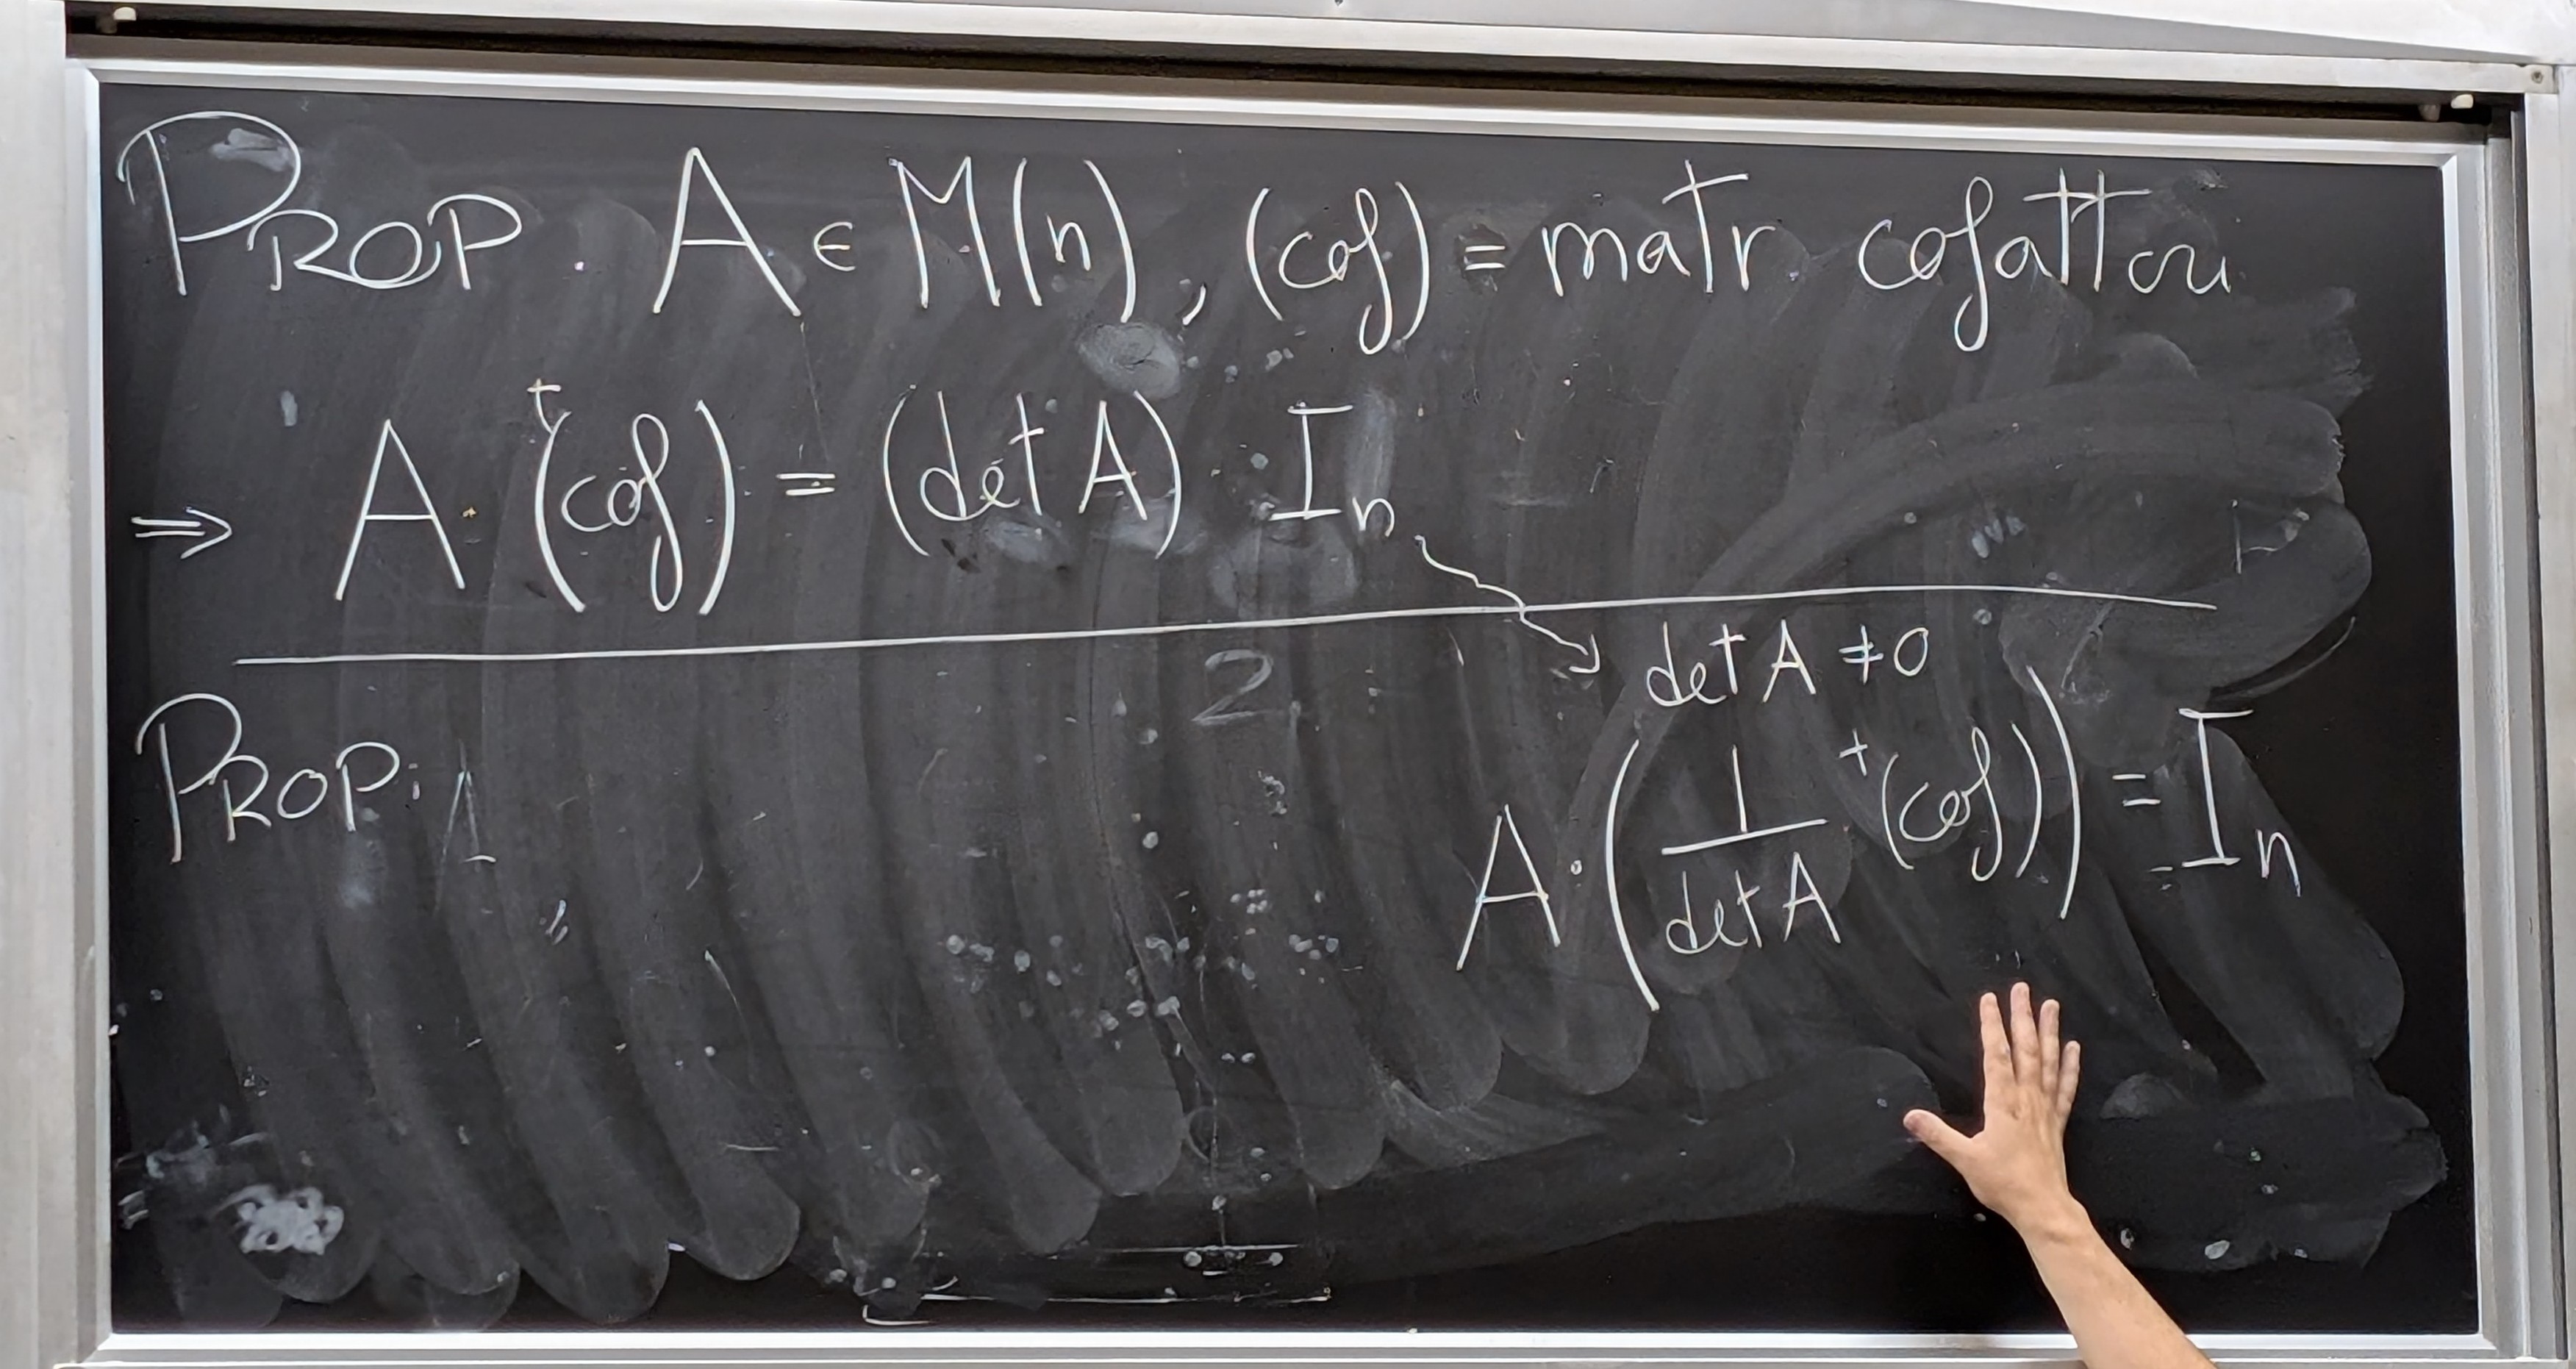 PROP. A ∈ M(n), (cof) = matr. cofattori
⇒ A · ᵗ(cof) = (det A) · Iₙ
det A ≠ 0
PROP.
A · (1/det A ᵗ(cof)) = Iₙ